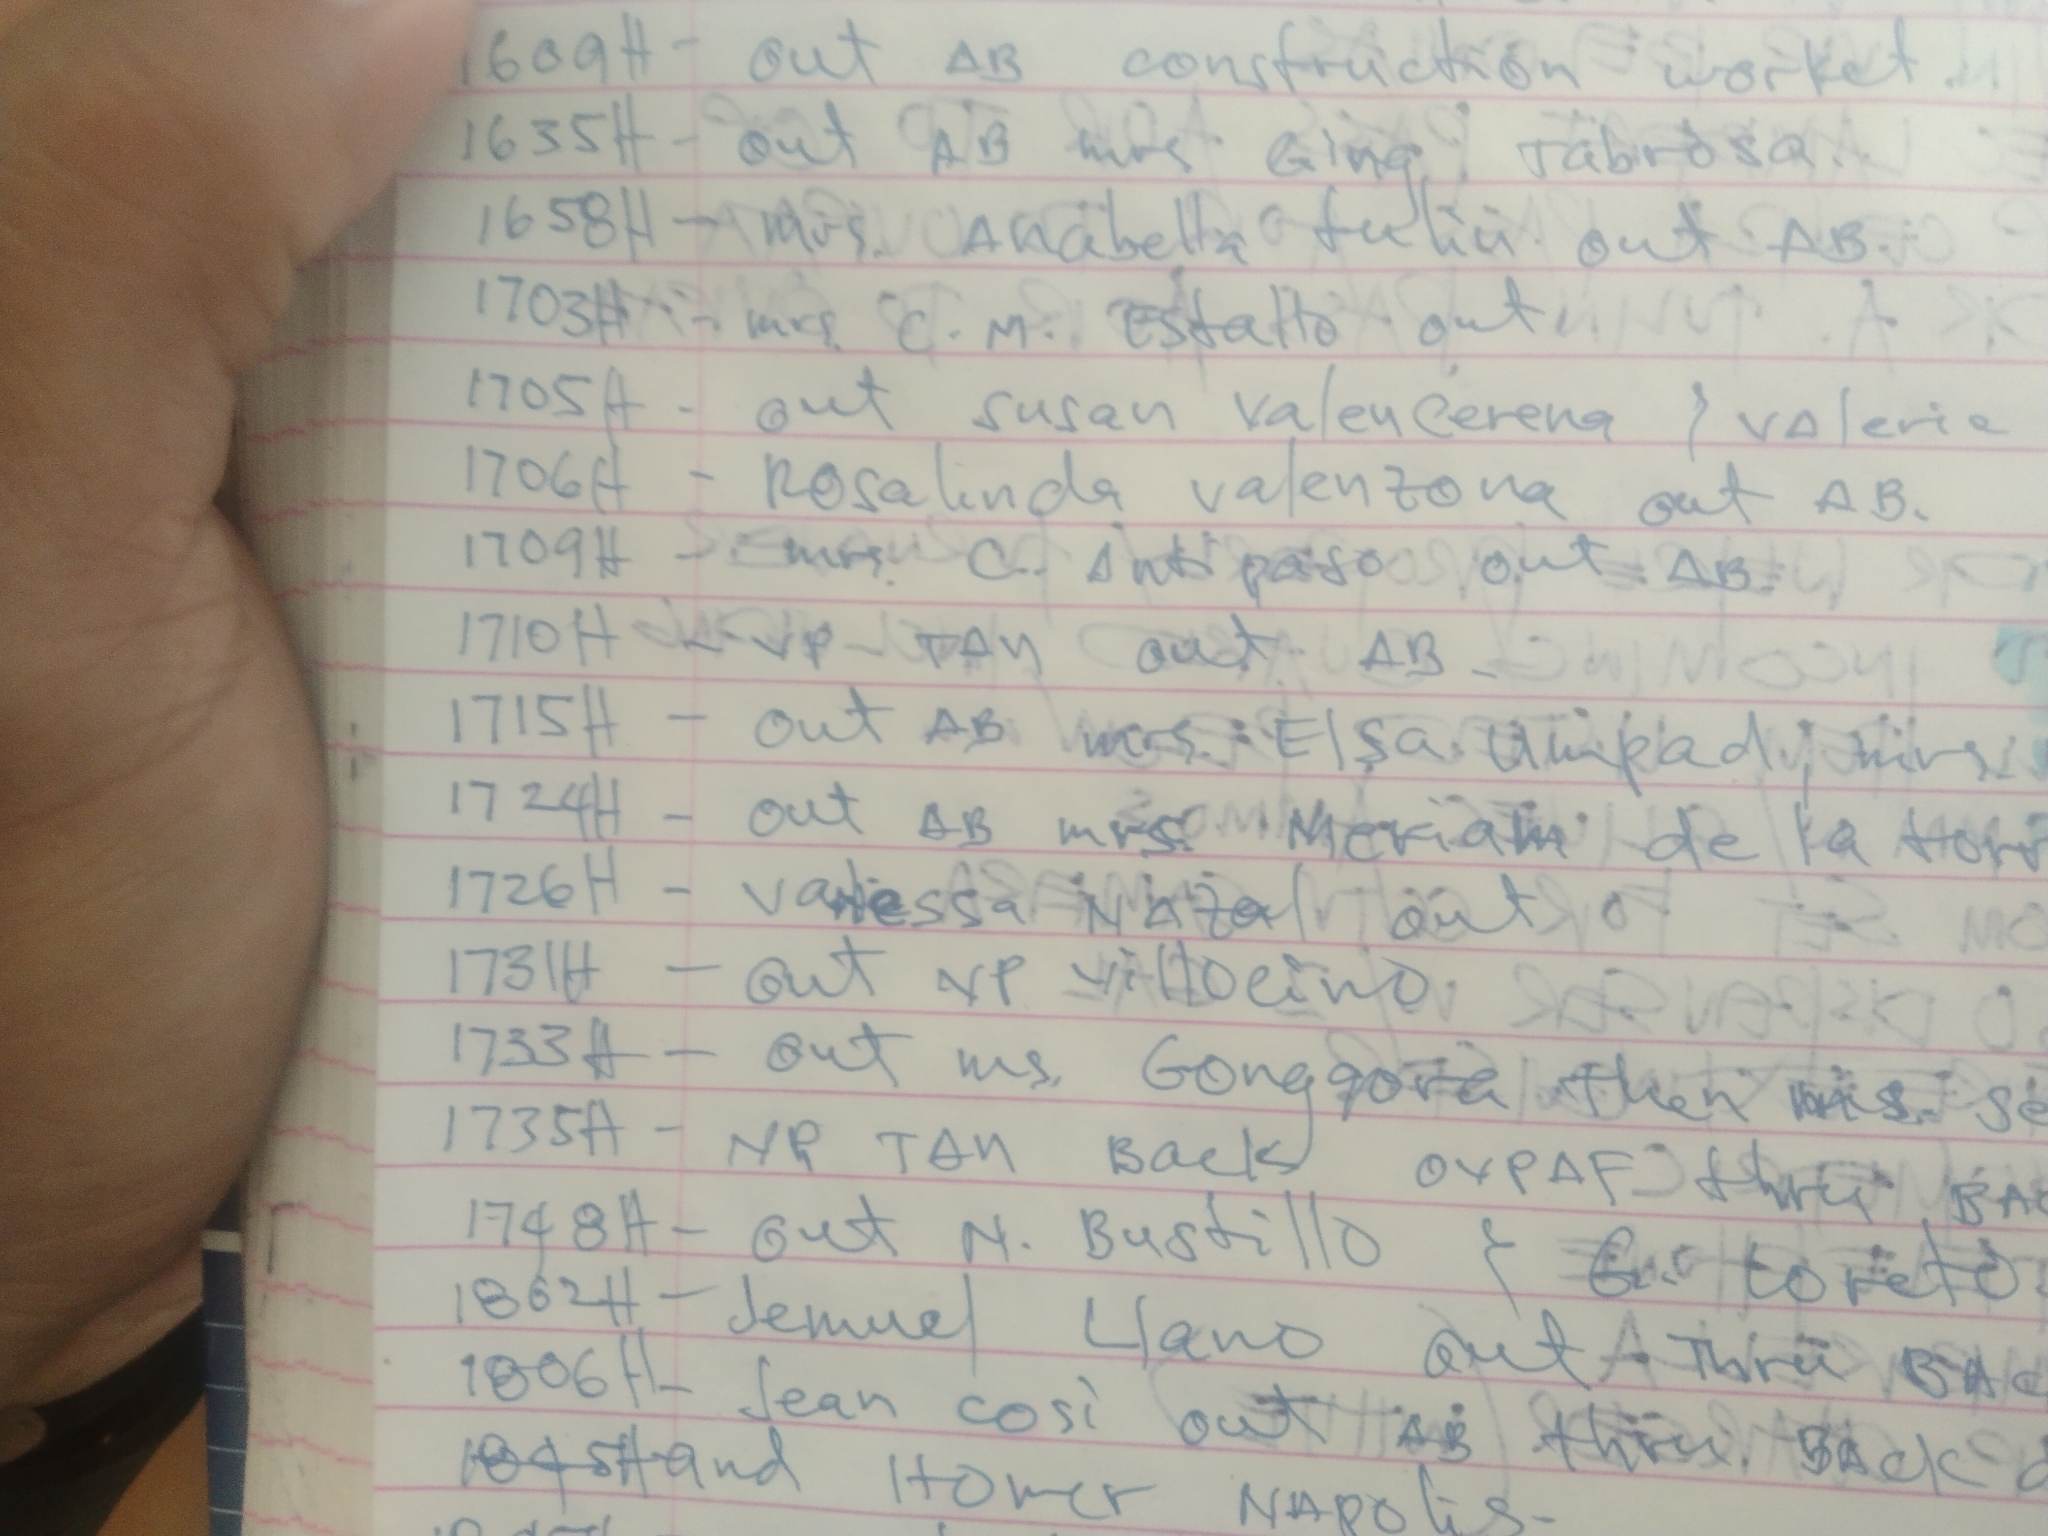 1609H - out AB construction worket.
1635H - out AB mrs Ging Tabrosa.
1658H - mrs. Anabella out AB.
1703H - mrs. C. M. Estallo out.
1705H - out susan valencerena & valerie
1706H - Rosalinda valenzona out AB.
1709H - mrs. C. Antipaso out AB.
1710H - VP - TAN out AB -
1715H - out AB mrs. Elsa Umpad, mrs.
1724H - out AB mrs. Meriam de la torr
1726H - vanessa Nazal out
1731H - out VP villocino.
1733H - out ms. Gonggora then ms. se
1735H - VP TAN Back OVPAF thru BAC
1748H - out N. Bustillo & G. loreto.
1802H - Jemuel Llano out thru BAC
1806H - Jean cosi out AB thru BACK d
1845H and Homer NAPOlis -